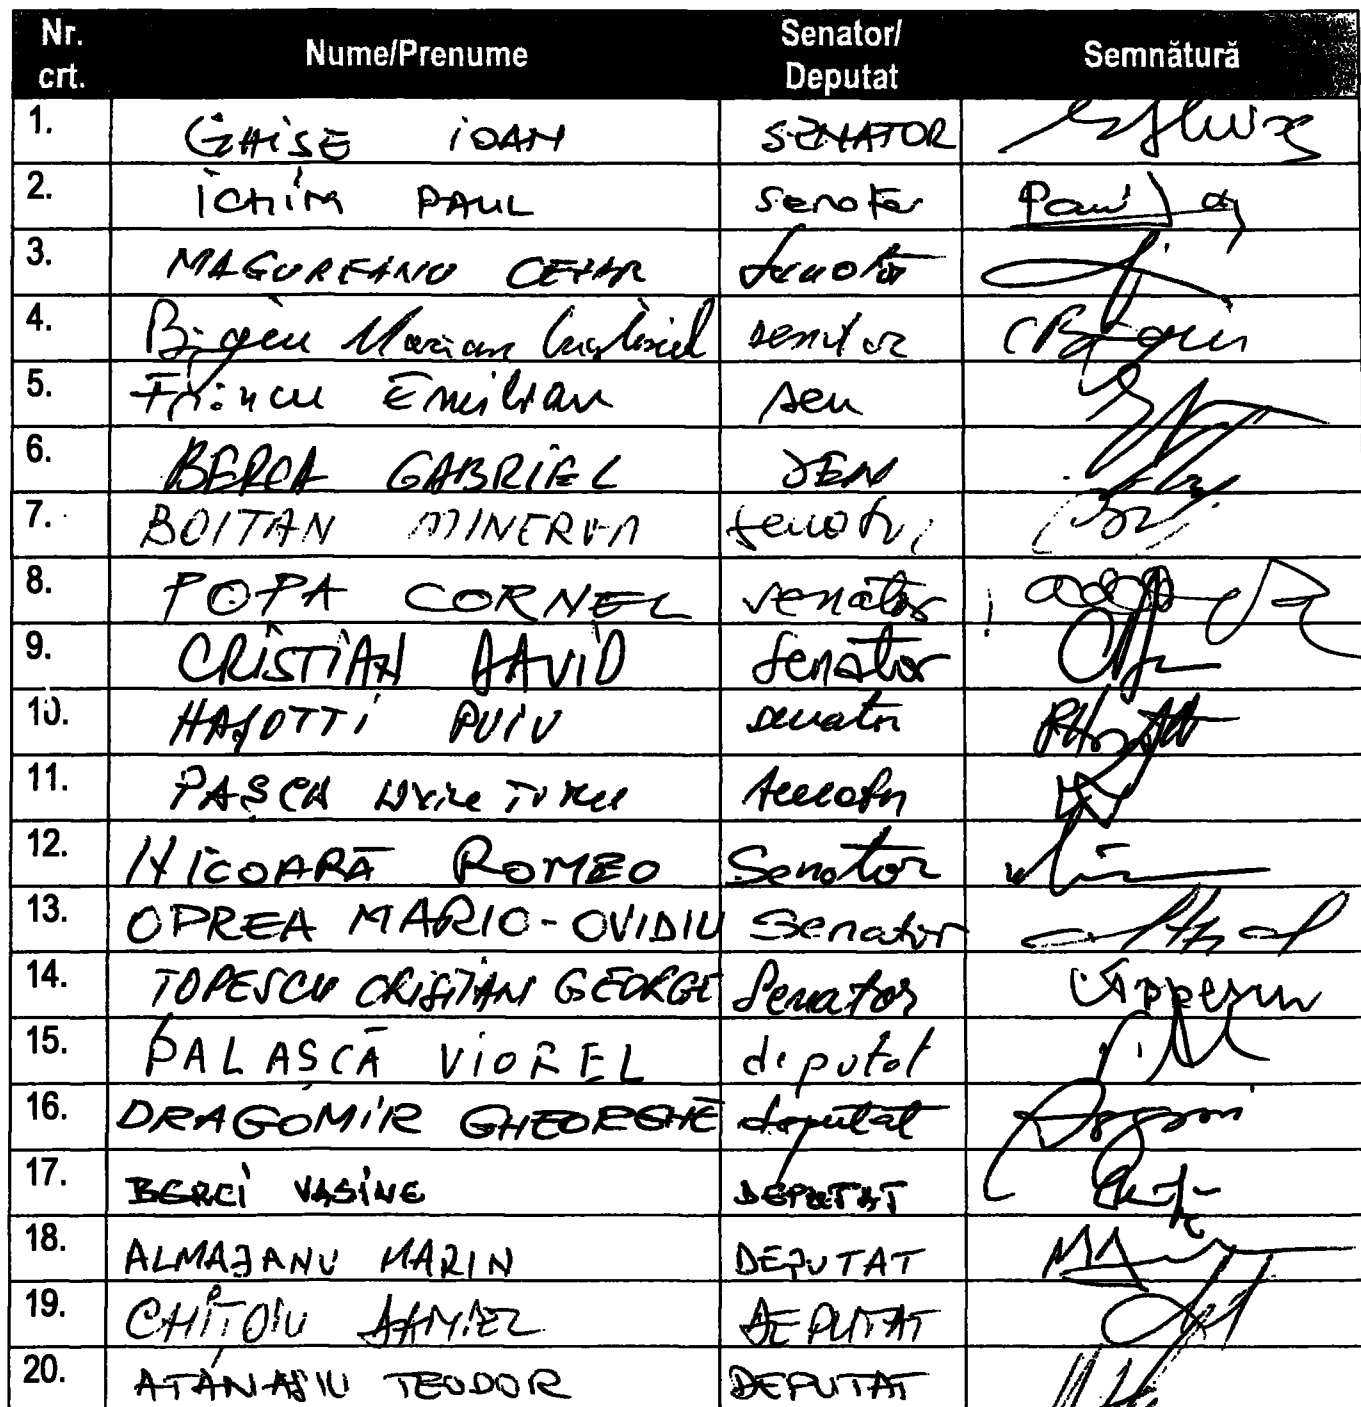 Nr. crt. Nume/Prenume Senator/ Deputat Semnătură
1. GHIŞE IOAN SENATOR
2. ICHIM PAUL senator
3. MAGUREANU CEZAR senator
4. Bîgiu Marian Cristinel senator
5. Frîncu Emilian sen
6. BERCA GABRIEL SEN
7. BOITAN MINERVA senator
8. POPA CORNEL senator
9. CRISTIAN DAVID senator
10. HAŞOTTI PUIU senator
11. PAŞCA senator
12. NICOARĂ ROMEO Senator
13. OPREA MARIO-OVIDIU Senator
14. TOPESCU CRISTIAN GEORGE Senator
15. PALAŞCĂ VIOREL deputat
16. DRAGOMIR GHEORGHE deputat
17. BERCI VASILE DEPUTAT
18. ALMAJANU MARIN DEPUTAT
19. CHIŢOIU DANIEL DEPUTAT
20. ATANASIU TEODOR DEPUTAT